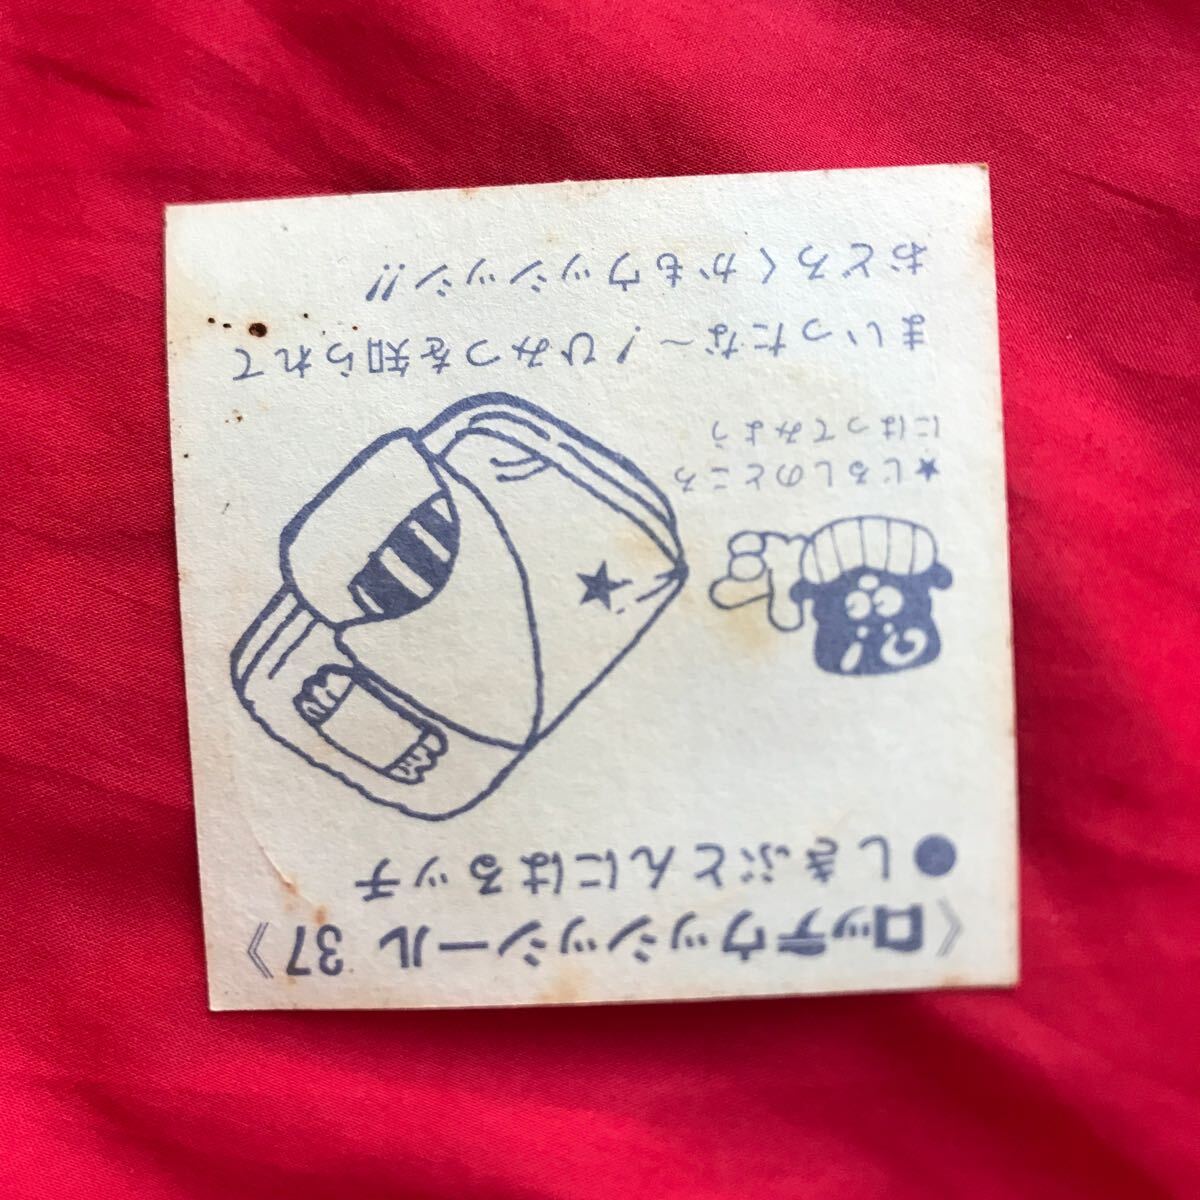 《ロッテウッシッシール 37》
●しきぶとんにはるッチ
?!
★じるしのところ
にはってみよう
まいったな～!ひみつを知られて
おどろくかもウッシッシ!!